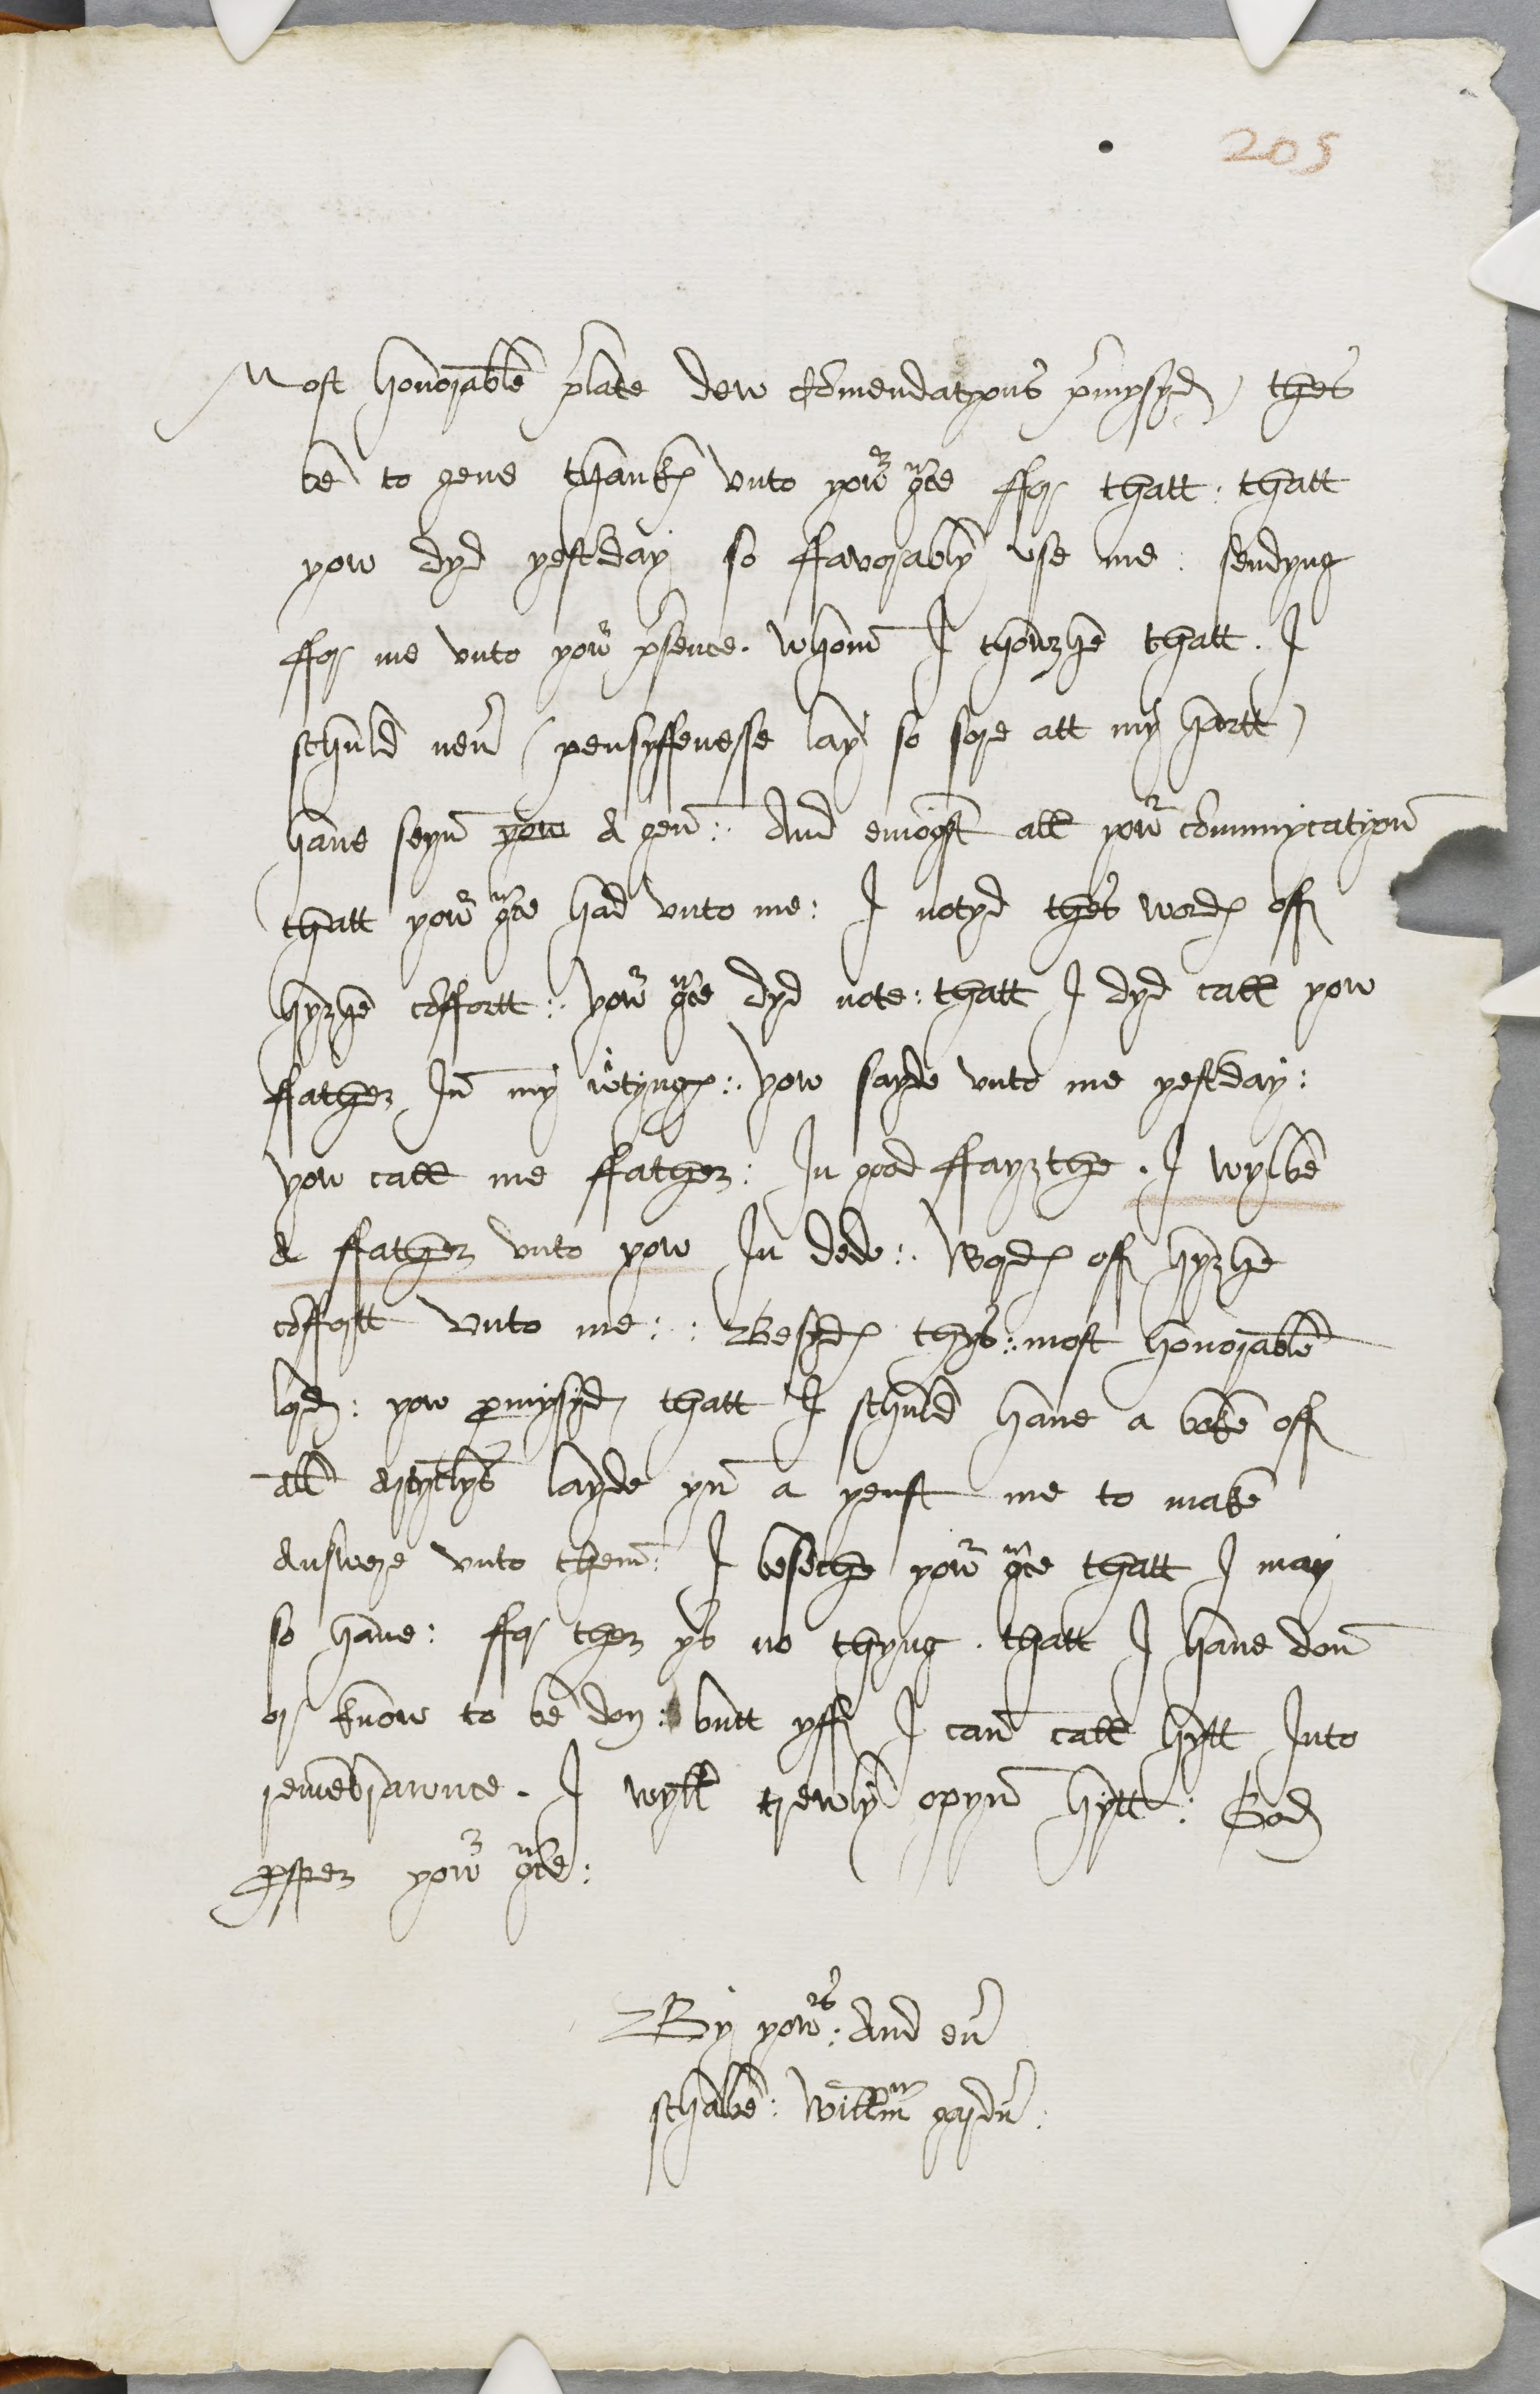 205
Most honorable p'late dew comendatyons p'mysyd, thes
be to geue thankes vnto yowr grace ffor thatt: thatt
yow dyd yest'day so ffavorably vse me: sendyng
ffor me vnto yowr p'sence. whom I thowzhe thatt. I
schuld neu' (pensyffenesse lay so sore att my hartt)
haue seyn yow a gen:. And emogst all yowr commycatyon
thatt yowr grace had vnto me: I notyd thes wordes off
hyzhe coffortt:. yowr grace dyd note: thatt I dyd call yow
ffather In my wrtynges:. yow sayde vnto me yest'day:
yow call me ffather: In good ffayzthe. I wylbe
a ffather vnto yow In dede:. wordes off hyzhe
coffortt vnto me:: Besydes thys:. most honorable
lord: yow promysyd thatt I schuld haue a boke off
all artyclys layde yn a yenst me to make
answere vnto them: I beseche yowr grace thatt I may
so haue: ffor ther ys no thyng. thatt I haue don
or know to be don: butt yff I can call hytt Into
remebrawnce. I wyll trewly opyn hytt: God
prosper yowr grace:
By yowrs: And eu'
schalbe: Willm gardn':